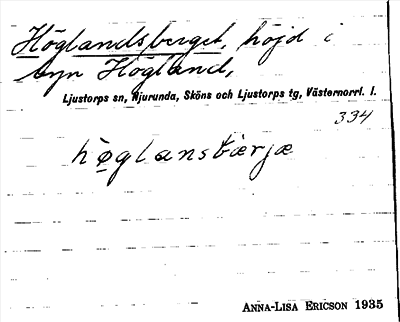 Höglandsberget, höjd i
byn Högland,
Ljustorps sn, Njurunda, Sköns och Ljustorps tg, Västernorrl. l.
334
hø̀glansbærjæ
ANNA-LISA ERICSON 1935